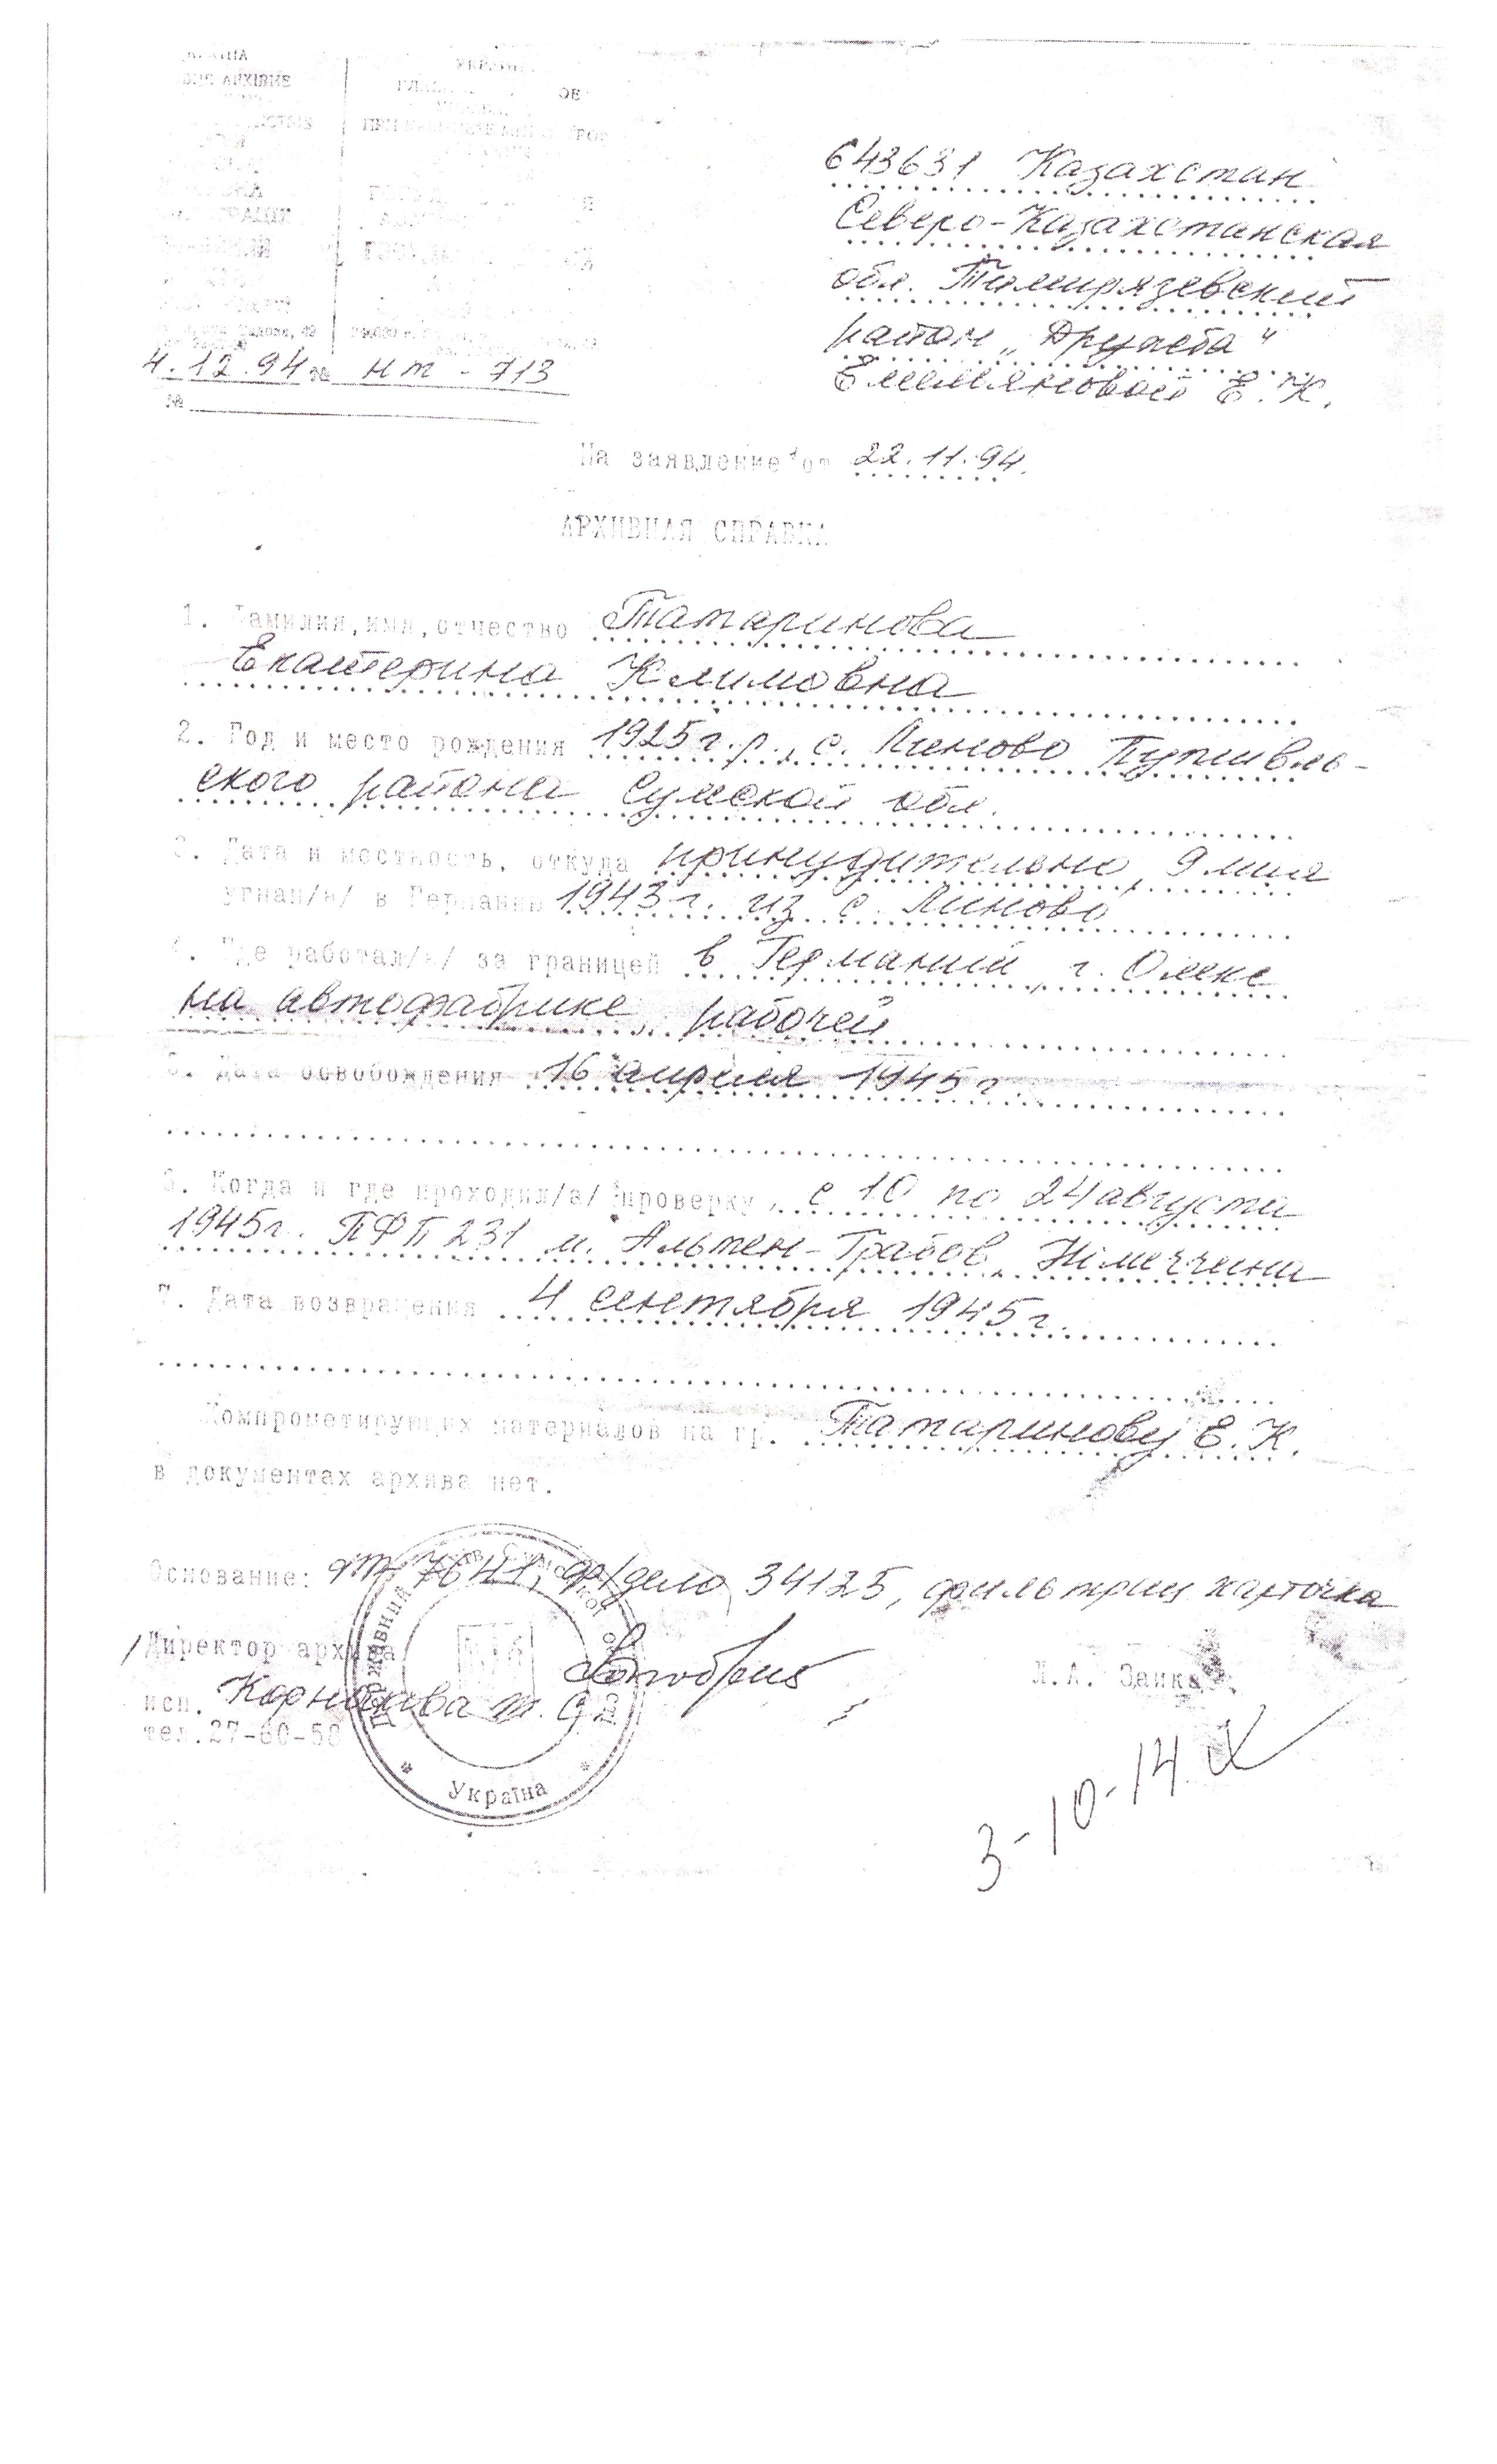 УКРАЇН
4.12.94 № нт - 713
№
643631 Казахстан
Северо-Казахстанская
обл. Тимирязевский
район „Дружба"
Емельяновой Е. К.
На заявление от 22.11.94.
АРХИВНАЯ СПРАВКА
1. Фамилия, имя, отчество Татаринова
Екатерина Климовна
2. Год и место рождения 1925 г.р., с. Линово Путивль-
ского района Сумской обл.
3. Дата и местность, откуда принудительно, 9 мая
угнан/а/ в Германию 1943 г. из с. Линово
4. Где работал/а/ за границей в Германии, г.
на автофабрике, рабочей
5. Дата освобождения 16 апреля 1945 г.
6. Когда и где проходил/а/ проверку, с 10 по 24 августа
1945г. ПФП 231 м. Альтен-Грабов, Німеччина
7. Дата возвращения 4 сентября 1945 г.
Компрометирующих материалов на гр. Татаринову Е. К.
в документах архива нет.
Основание: 7641, ф/дело 34125, фильтрац карточка
Директор архива Л.А. Заика
исп. Т. С.
тел. 27-60-58
Державний архів Сумської області
* Україна *
3-10-14